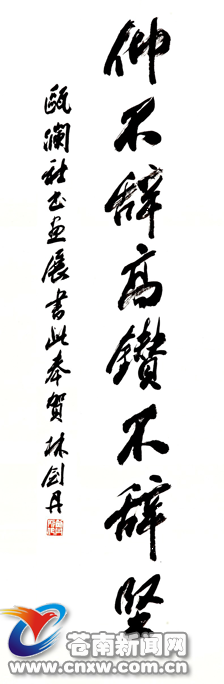 仰不辞高鑚不辞坚
瓯澜社书画展书此奉贺 林剑丹
苍南新闻网
www.cnxw.com.cn